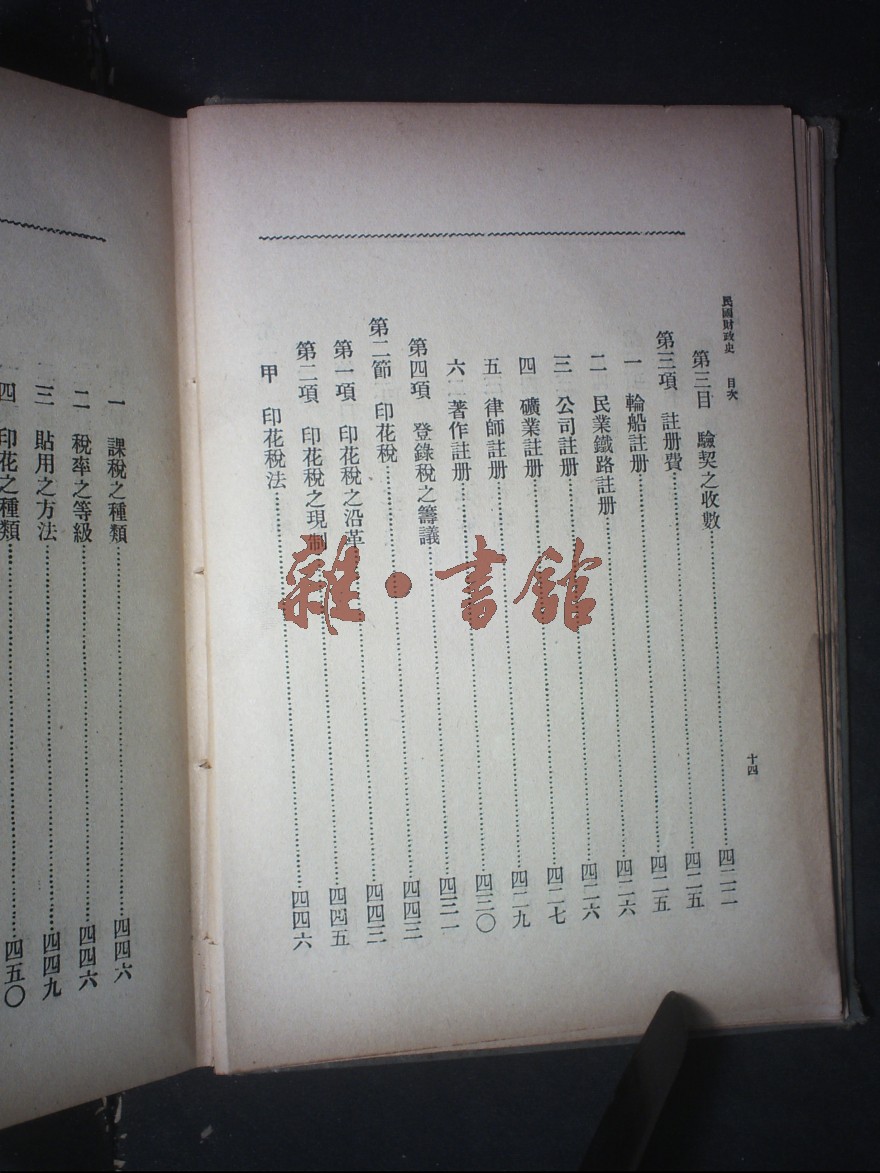 民國財政史　目次
十四
第三目　驗契之收數……四二二
第三項　註册費……四二五
一　輪船註册……四二五
二　民業鐵路註册……四二六
三　公司註册……四二六
四　礦業註册……四二七
五　律師註册……四二九
六　著作註册……四三〇
第四項　登錄稅之籌議……四三一
第二節　印花稅……四四三
第一項　印花稅之沿革……四四三
第二項　印花稅之現制……四四五
甲　印花稅法……四四六
一　課稅之種類……四四六
二　稅率之等級……四四六
三　貼用之方法……四四九
四　印花之種類……四五〇
雜·書館